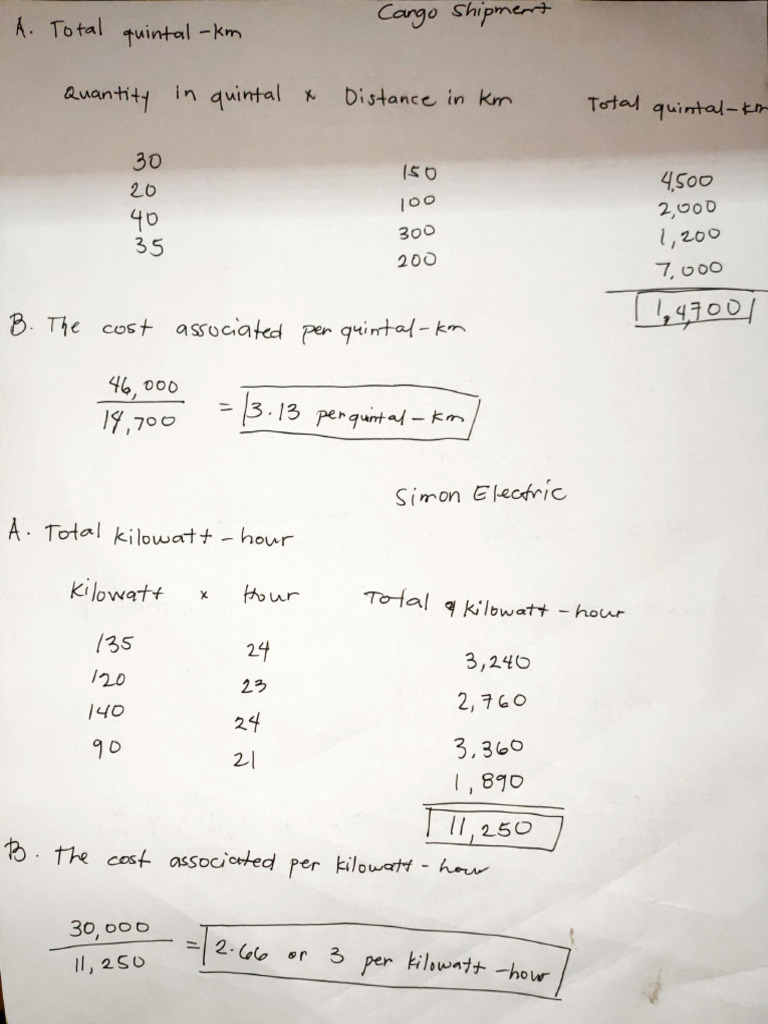 Cargo Shipment
A. Total quintal-km
Quantity in quintal x Distance in km Total quintal-km
30 150 4,500
20 100 2,000
40 300 1,200
35 200 7,000
1,4,700
B. The cost associated per quintal-km
46,000
14,700
= 3.13 per quintal-km
Simon Electric
A. Total kilowatt-hour
Kilowatt x Hour Total kilowatt-hour
135 24 3,240
120 23 2,760
140 24 3,360
90 21 1,890
11,250
B. The cost associated per kilowatt-hour
30,000
11,250
= 2.66 or 3 per kilowatt-hour